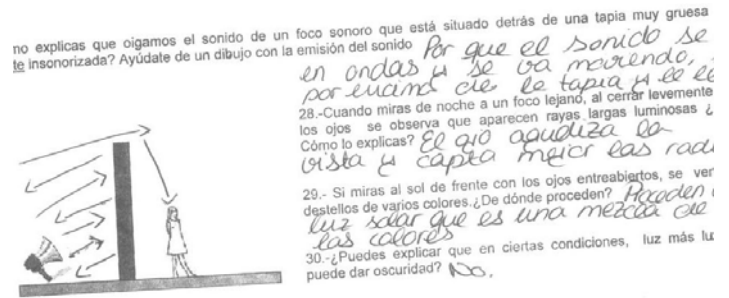 no explicas que oigamos el sonido de un foco sonoro que está situado detrás de una tapia muy gruesa
te insonorizada? Ayúdate de un dibujo con la emisión del sonido Por que el sonido se
en ondas y se va moviendo,
por encima de la tapia y le
28.-Cuando miras de noche a un foco lejano, al cerrar levemente
los ojos se observa que aparecen rayas largas luminosas ¿
Cómo lo explicas? El ojo agudiza la
vista y capta mejor las
29.- Si miras al sol de frente con los ojos entreabiertos, se ver
destellos de varios colores.¿De dónde proceden? Proceden
luz solar que es una mezcla de
las colores
30.-¿Puedes explicar que en ciertas condiciones, luz más lu
puede dar oscuridad? No.